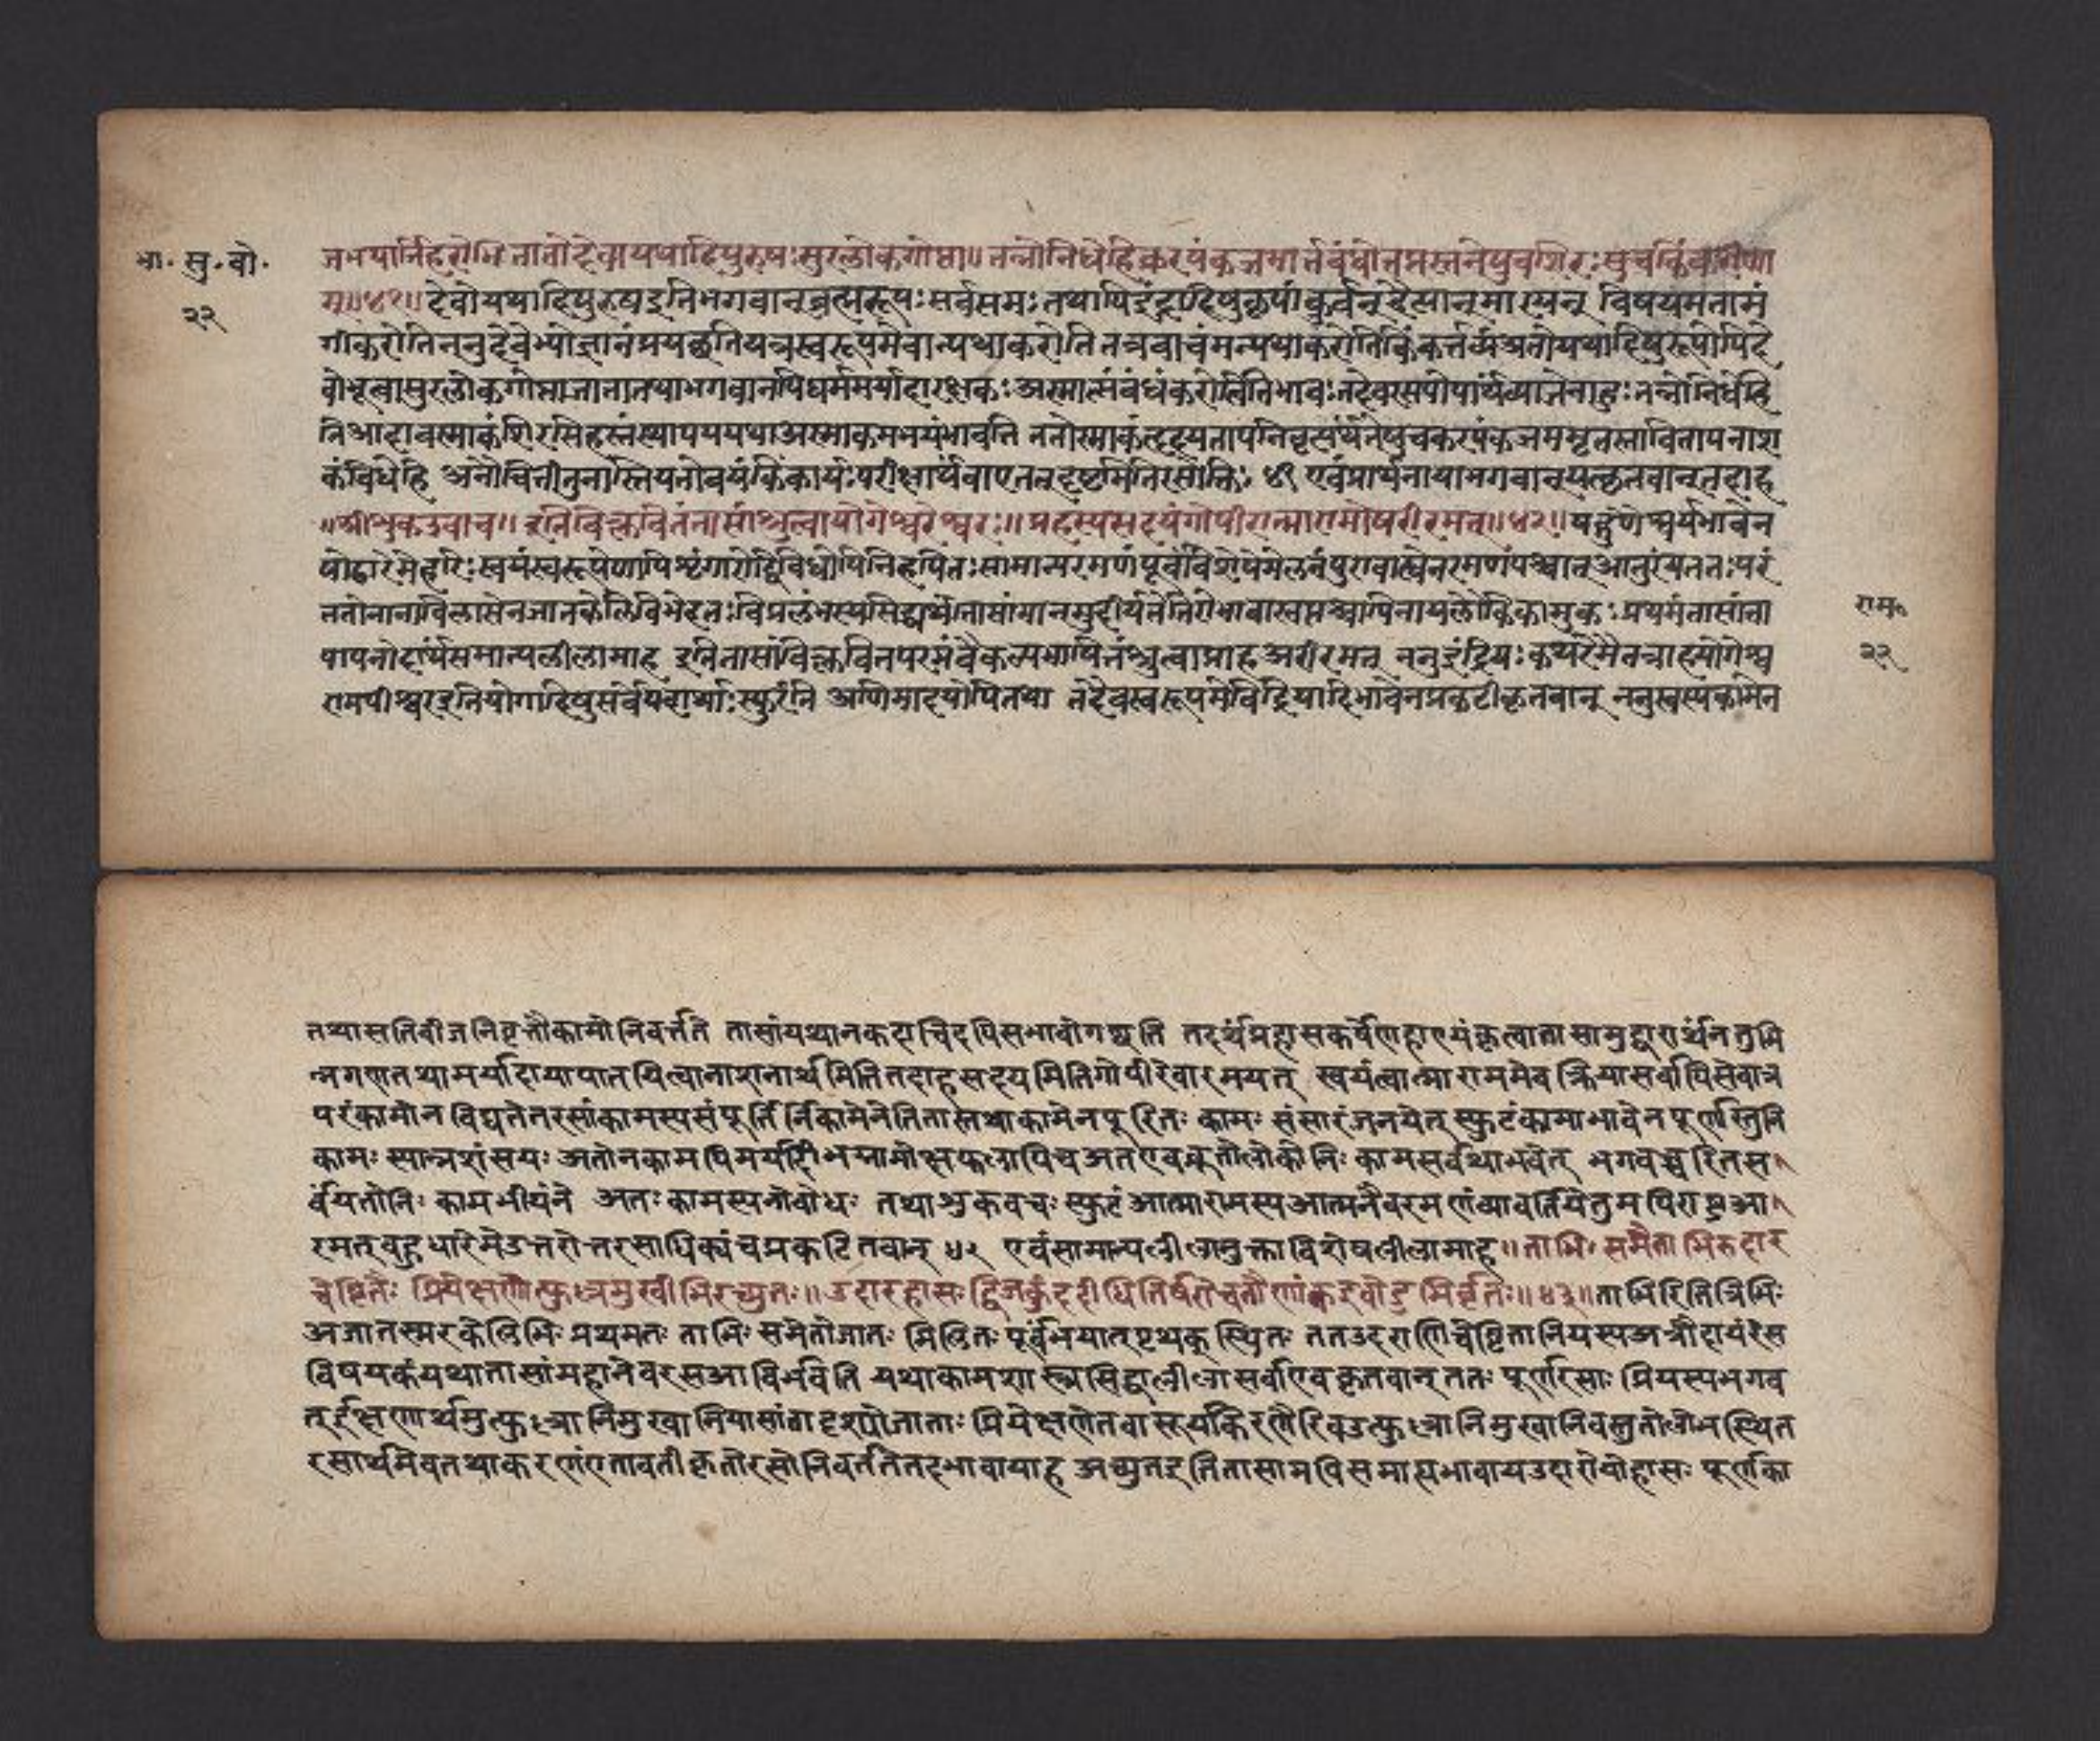 भा. सु. बो.
२२
जभयार्तिहरोभिजातोदेवोयथादिपुरुषःसुरलोकगोप्ता॥तन्नोनिधेहिकरपंकजमार्तबंधोतप्तस्तनेषुचशिरःसुचकिंकरीणा
म्॥४१॥देवोयथादिपुरुषइतिभगवान्ब्रह्मरूपःसर्वसमःतथापिइंद्रादिषुकृपांकुर्वन्दैत्यान्मारयन् विषयमतामं
गीकरोतिननुदेवेभ्योज्ञानंप्रयच्छतियत्रस्वरूपमेवान्यथाकरोतितत्रवाचंमन्यथाकरोतिकिंकर्त्तव्यंअतोयथादिपुरुषोपिदे
वोभूत्वासुरलोकगोप्ताजातातथाभगवानपिधर्ममर्यादारक्षकःअस्मात्संबंधंकरोत्वितिभावःतदेवरसपोषार्थंव्याजेनाहुःतन्नोनिधेहि
तिआदावस्माकंशिरसिहस्तंस्थापययथाअस्माकमभयंभावति ततोस्माकंहृदयतापनिवृत्त्यर्थंस्तनेषुचकरपंकजममृतस्रावितापनाश
कंविधेहि अनौचितीतुनास्तियतोवयंकिंकार्यःपरीक्षार्थंवाएतत्नदृष्टमितिरसोक्तिः ४१ एवंप्रार्थनायांभगवान्यत्कृतवान्तदाह
॥श्रीशुकउवाच॥इतिविक्लवितंतासांश्रुत्वायोगेश्वरेश्वरः॥प्रहस्यसदयंगोपीरात्मारामोप्यरीरमत्॥४२॥षड्गुणैश्वर्यभावेन
षोढारेमेहरिःस्वयंस्वरूपेणापिशृंगारोद्विविधोपिनिरूपितःसामान्यरमणंपूर्वंविशेषेमेलनंपुरावाह्येनरमणंपश्चात्आंतुरंयततःपरं
ततोनानाविलासेनजातकेलिविभेदतःविप्रलंभस्यसिद्ध्यर्थंतासांमानमुदीर्यतेतिरोभावास्ततश्चापिनायंलौकिककामुकःप्रथमंतासांता
पापनोदार्थंसमान्यलीलामाह इतितासांविक्लवितंपरमंवैकल्यभाषितंश्रुत्वाप्राहअरीरमत् ननुइंद्रियःकथंरेमेतत्राहयोगेश्व
राणामपीश्वरइतियोगादिषुसर्वेपदार्थाःस्फुरंति अणिमादयोपितथा तदैवस्वरूपमेवेंद्रियादिभावेनप्रकटीकृतवान् ननुस्वस्यकामेन
राम॰
२२
तथासतिबीजनिवृत्तौकामोनिवर्त्तते तासांयथानकदाचिदपिसभावोगच्छति तदर्थंप्रहासकर्षेणहास्यंकृत्वातासामुद्धारार्थंनतुभि
न्नगणतयामर्यादायापातयित्वानाशनार्थमितितदाहसदयमितिगोपीरेवारमयत् स्वयंत्वात्मारामएव क्रियासर्वापिसेवात्र
परंकामोन विद्यतेतरसांकामस्यसंपूर्तिर्निःकामेनेतितास्तथाकामेनपूरितः कामः संसारंजनयेत् स्फुटंकामाभावेनपूर्णस्तुनि
कामः स्यान्नसंशयः अतोनकामपिमर्यादाभग्नामोक्षफलापिच अतएवश्रुतौलोकोनिः कामसर्वथाभवेत् भगवच्चरितंस
र्वंयतोनिः कामभीर्यते अतः कामस्यनोबोधः तथाशुकवचः स्फुटं आत्मारामस्यआत्मनैवरमणंव्यावर्तयितुमपिशब्दआ
रमत्बहुधारेमेउत्तरोत्तररसाधिक्यंचप्रकटितवान् ४२ एवंसामान्यलीलामुक्त्वाविशेषलीलामाह॥ताभिः समेताभिरुदार
चेष्टितैः प्रियेक्षणोत्फुल्लमुखीभिरच्युतः॥उदारहासः द्विजकुंददीधितिर्व्यरोचतैणांकइवोडुभिर्वृतः॥४३॥ताभिरितित्रिभिः
अजातस्मरकेलिभिः प्रथमतः ताभिः समेतोजातः मिलितः पूर्वंभयात्पृथक् स्थितः ततउदाराणिचेष्टितानियस्यअत्रौदार्यंरस
विषयकंयथातासांमहानेवरसआविर्भवति यथाकामशास्त्रसिद्धालीलासर्वाएवकृतवान् ततः पूर्णरसाः प्रियस्यभगव
त्ईक्षणार्थमुत्फुल्लानिमुखानियासांतादृश्योजाताः प्रियेक्षणेनवासूर्यकिरणैरिवउत्फुल्लानिमुखानिवस्तुतोलोभस्थित
रसार्थमेवतथाकरणंएतावतीकृतोरसोनिवर्ततेतदभावायाह अच्युतइतितासामपिसमात्यभावायउदारोयोहासः पूर्णका